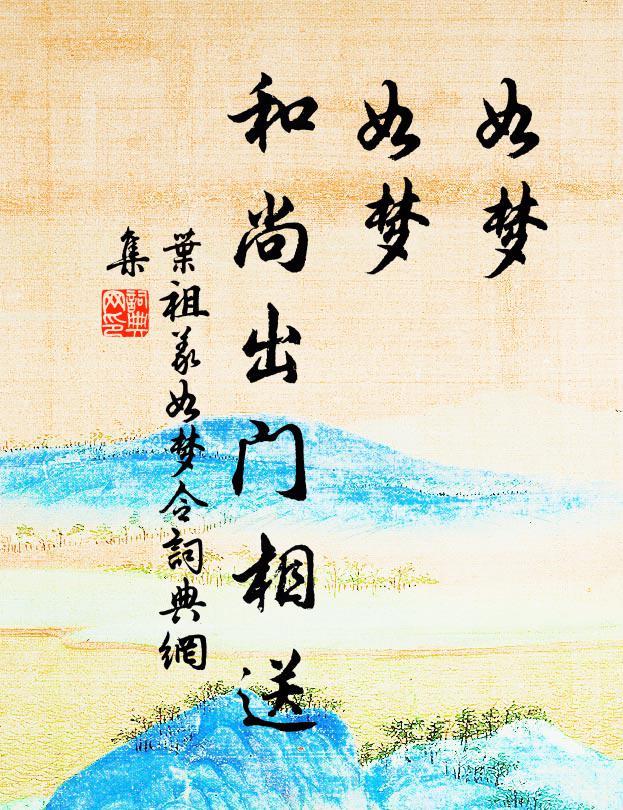 如梦
如梦
和尚出门相送
葉祖義如梦令詞典網
集
詞典
网印